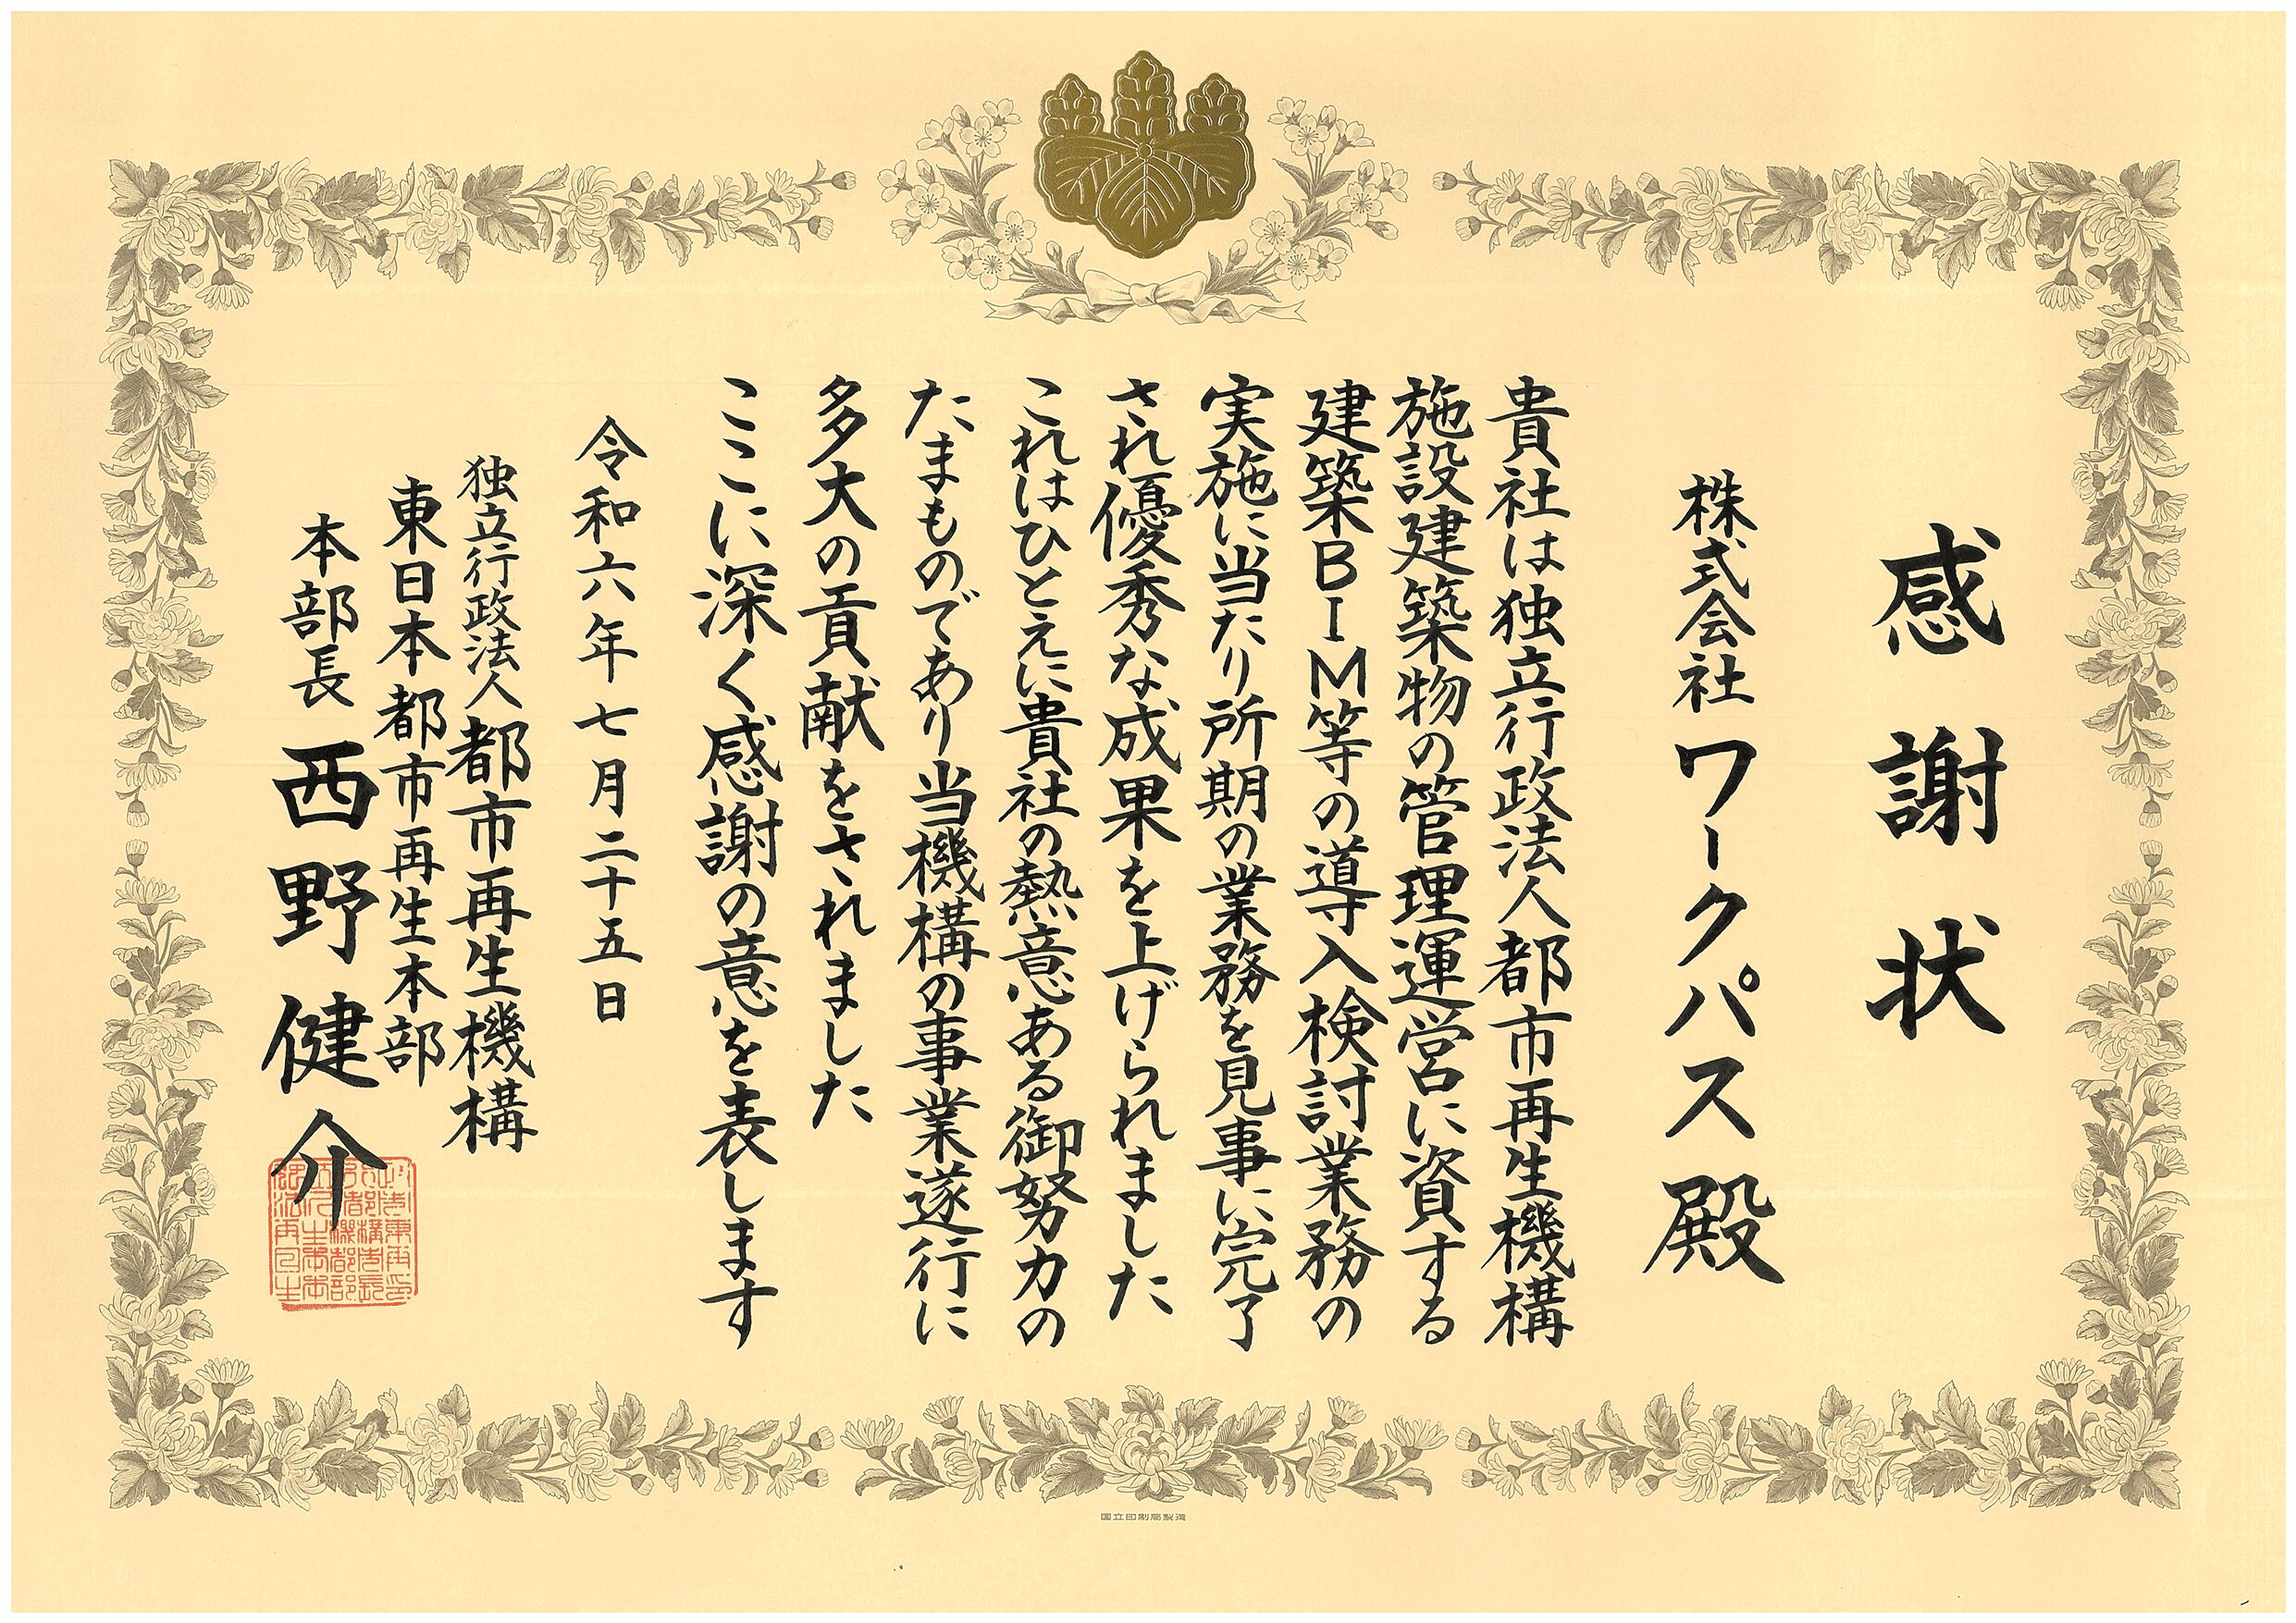 感謝状
株式会社ワークパス殿
貴社は独立行政法人都市再生機構
施設建築物の管理運営に資する
建築BIM等の導入検討業務の
実施に当たり所期の業務を見事に完了
され優秀な成果を上げられました
これはひとえに貴社の熱意ある御努力の
たまものであり当機構の事業遂行に
多大の貢献をされました
ここに深く感謝の意を表します
令和六年七月二十五日
独立行政法人都市再生機構
東日本都市再生本部
本部長西野健介
国立印刷局製造